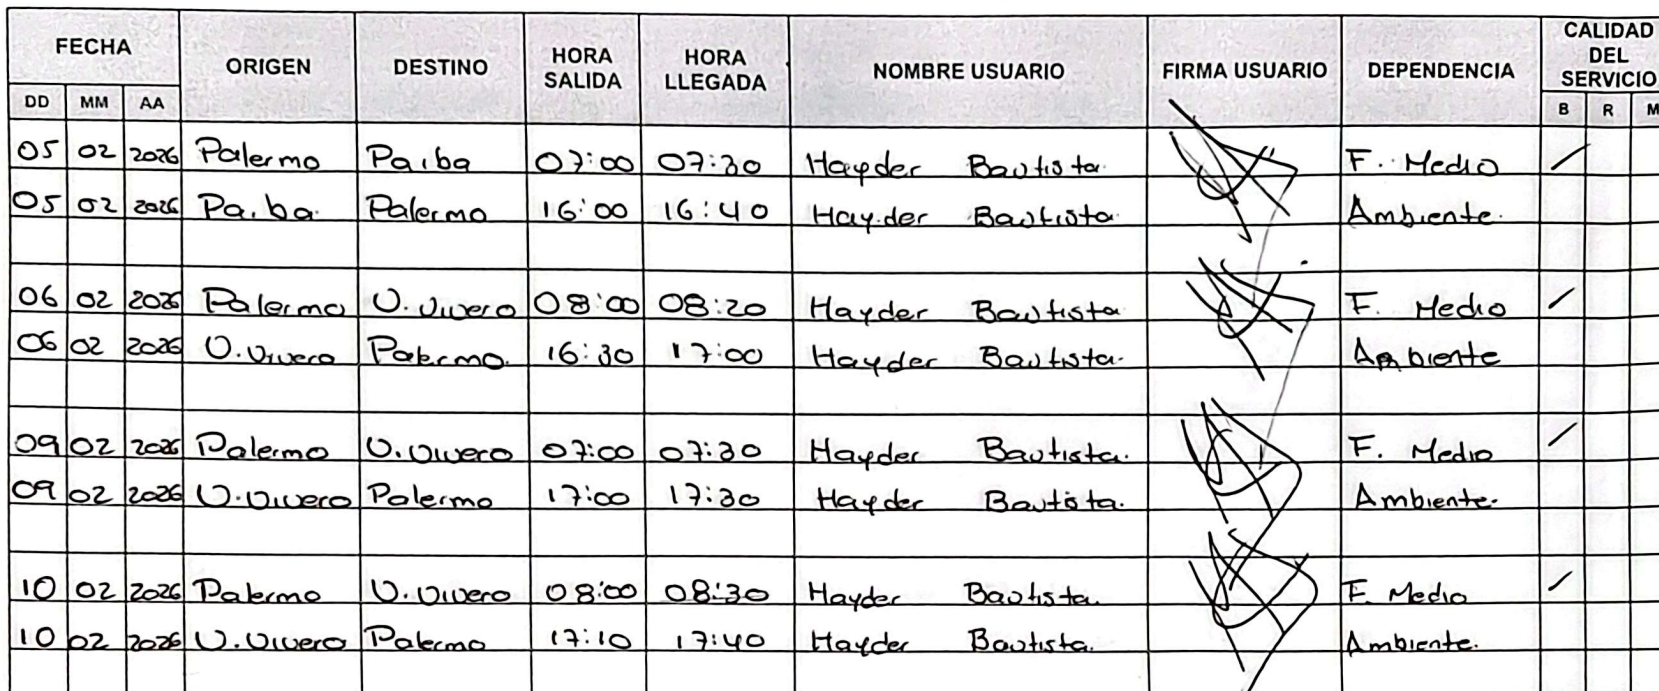 FECHA ORIGEN DESTINO HORA SALIDA HORA LLEGADA NOMBRE USUARIO FIRMA USUARIO DEPENDENCIA CALIDAD DEL SERVICIO
DD MM AA B R M
05 02 2026 Palermo Paiba 07:00 07:30 Hayder Bautista F. Medio /
05 02 2026 Paiba Palermo 16:00 16:40 Hayder Bautista Ambiente.
06 02 2026 Palermo U. Vivero 08:00 08:20 Hayder Bautista F. Medio /
06 02 2026 U. Vivero Palermo. 16:30 17:00 Hayder Bautista. Ambiente
09 02 2026 Palermo U. Vivero 07:00 07:30 Hayder Bautista. F. Medio /
09 02 2026 U. Vivero Palermo 17:00 17:30 Hayder Bautista. Ambiente.
10 02 2026 Palermo U. Vivero 08:00 08:30 Hayder Bautista. F. Medio /
10 02 2026 U. Vivero Palermo 17:10 17:40 Hayder Bautista. Ambiente.